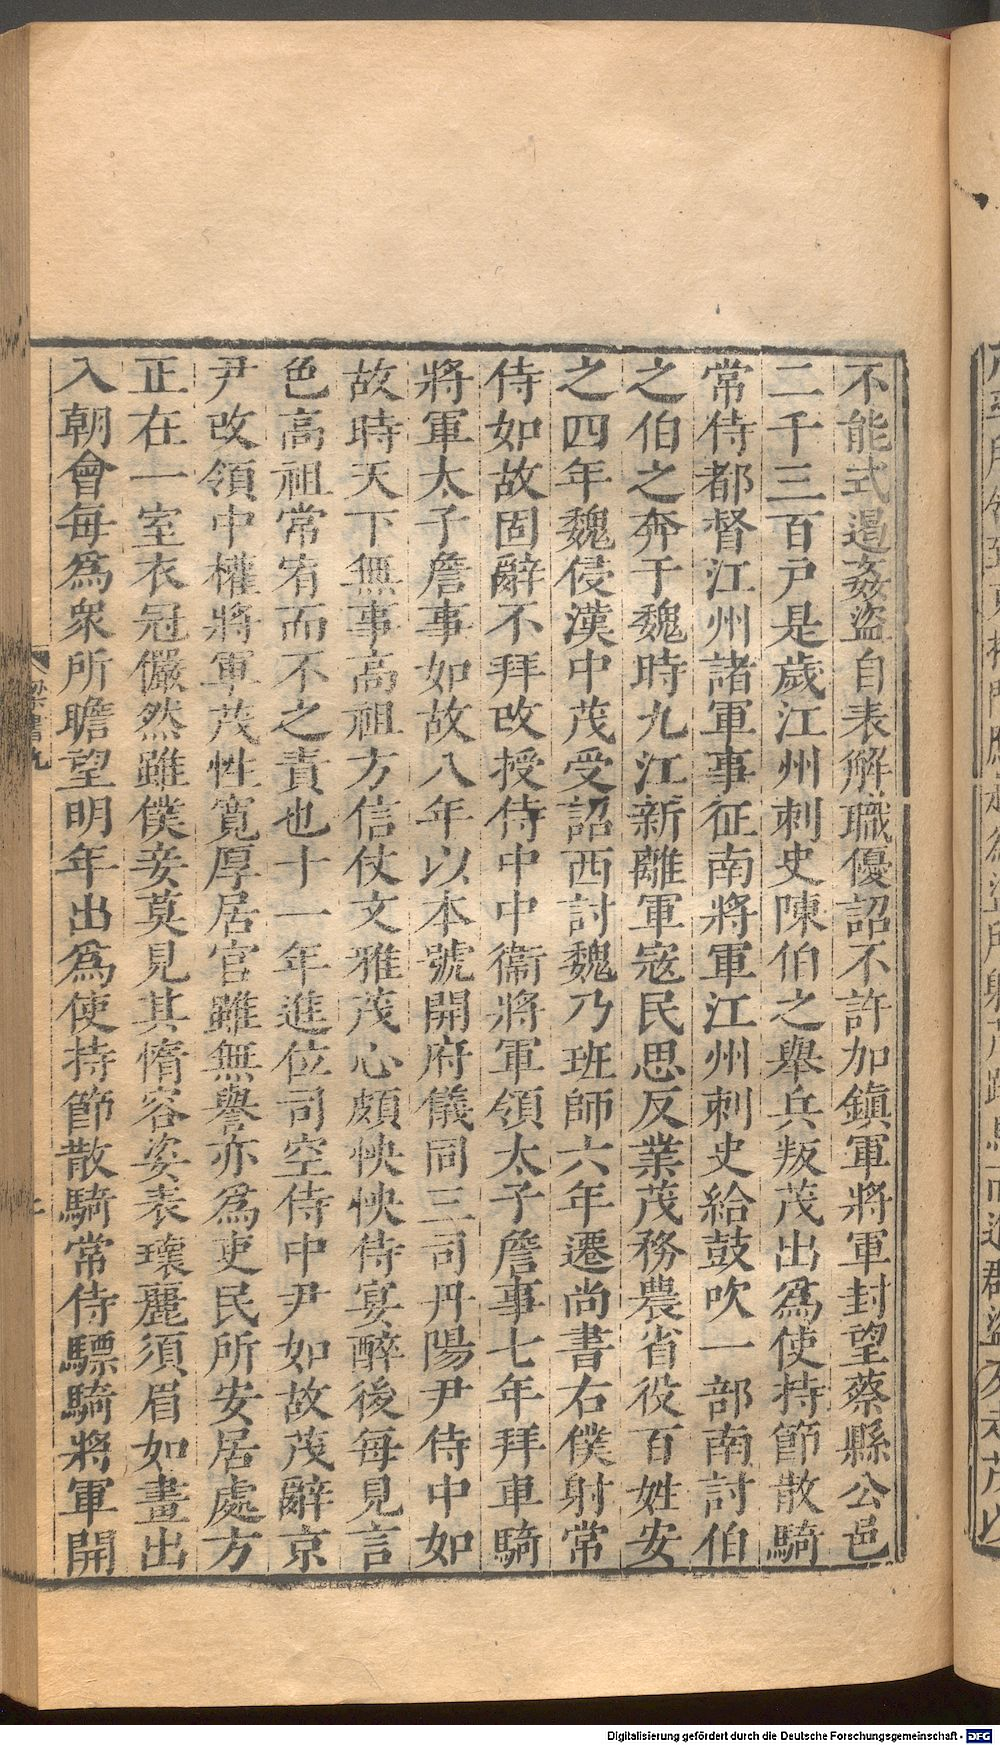 不能式遏姦盜自表解職優詔不許加鎮軍將軍封望蔡縣公邑
二千三百戸是歲江州刺史陳伯之舉兵叛茂出爲使持節散騎
常侍都督江州諸軍事征南將軍江州刺史給鼓吹一部南討伯
之伯之奔于魏時九江新離軍寇民思反業茂務農省役百姓安
之四年魏侵漢中茂受詔西討魏乃班師六年遷尚書右僕射常
侍如故固辭不拜改授侍中中衞將軍領太子詹事七年拜車騎
將軍太子詹事如故八年以本號開府儀同三司丹陽尹侍中如
故時天下無事高祖方信仗文雅茂心頗怏怏侍宴醉後每見言
色高祖常宥而不之責也十一年進位司空侍中尹如故茂辭京
尹改領中權將軍茂性寬厚居官雖無譽亦爲吏民所安居處方
正在一室衣冠儼然雖僕妾莫見其惰容姿表瓌麗須眉如畫出
入朝會每爲衆所瞻望明年出爲使持節散騎常侍驃騎將軍開
梁書九
Digitalisierung gefördert durch die Deutsche Forschungsgemeinschaft - DFG